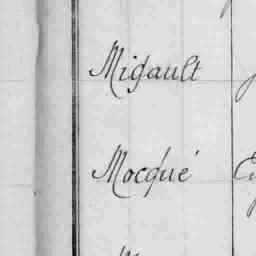 Migault
Mocqué